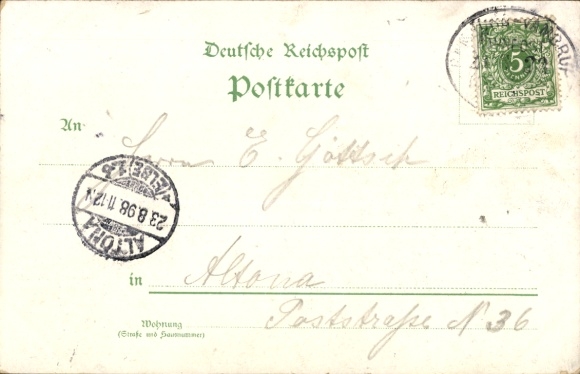 Deutsche Reichspost
Postkarte
5
REICHSPOST
An
Herrn E. Göttsch
ALTONA
23.8.98.11-12V
(ELBE) 1.b
in Altona
Poststraße N 36
Wohnung
(Straße und Hausnummer)